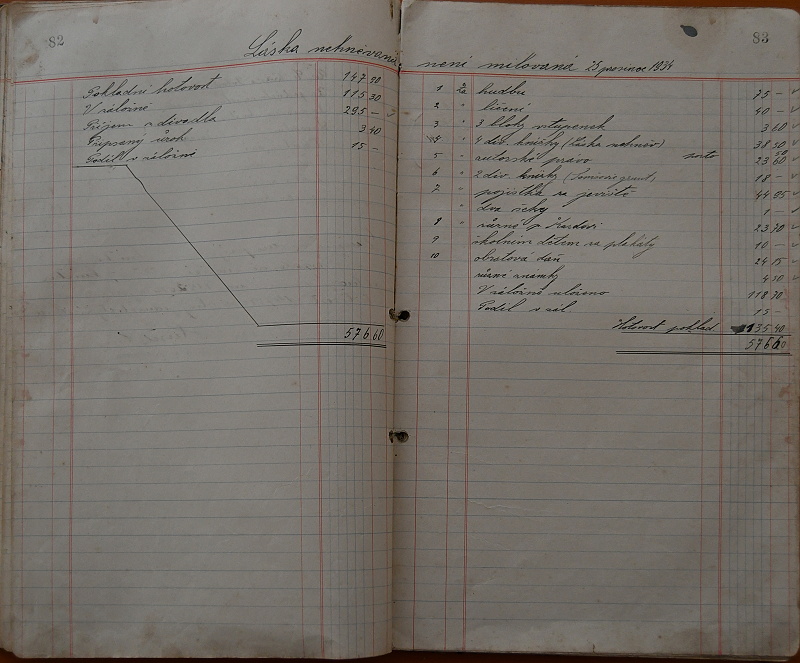 82
Láska nehněvaná
Pokladní hotovost 147 90
V záložně 115 30
Příjem z divadla 295 —
Připsaný úrok 3 40
Podíl v záložně 15 —
576 60
83
není milovaná 25 prosince 1934
1 za hudbu 75 —
2 " líčení 40 —
3 " 3 bloky vstupenek 3 60
4 " 4 div. knížky (Láska nehněv) 38 50
5 " autorské právo porto 23 60
6 " 2 div. knížky 18 —
7 " pojistka za jeviště 44 95
" dva šeky 1 —
8 " různé p. 23 70
9 školním dětem za plakáty 10 —
10 obratová daň 24 15
různé známky 4 50
V záložně uloženo 118 70
Podíl v zál. 15 —
Hotovost poklad 135 40
576 60